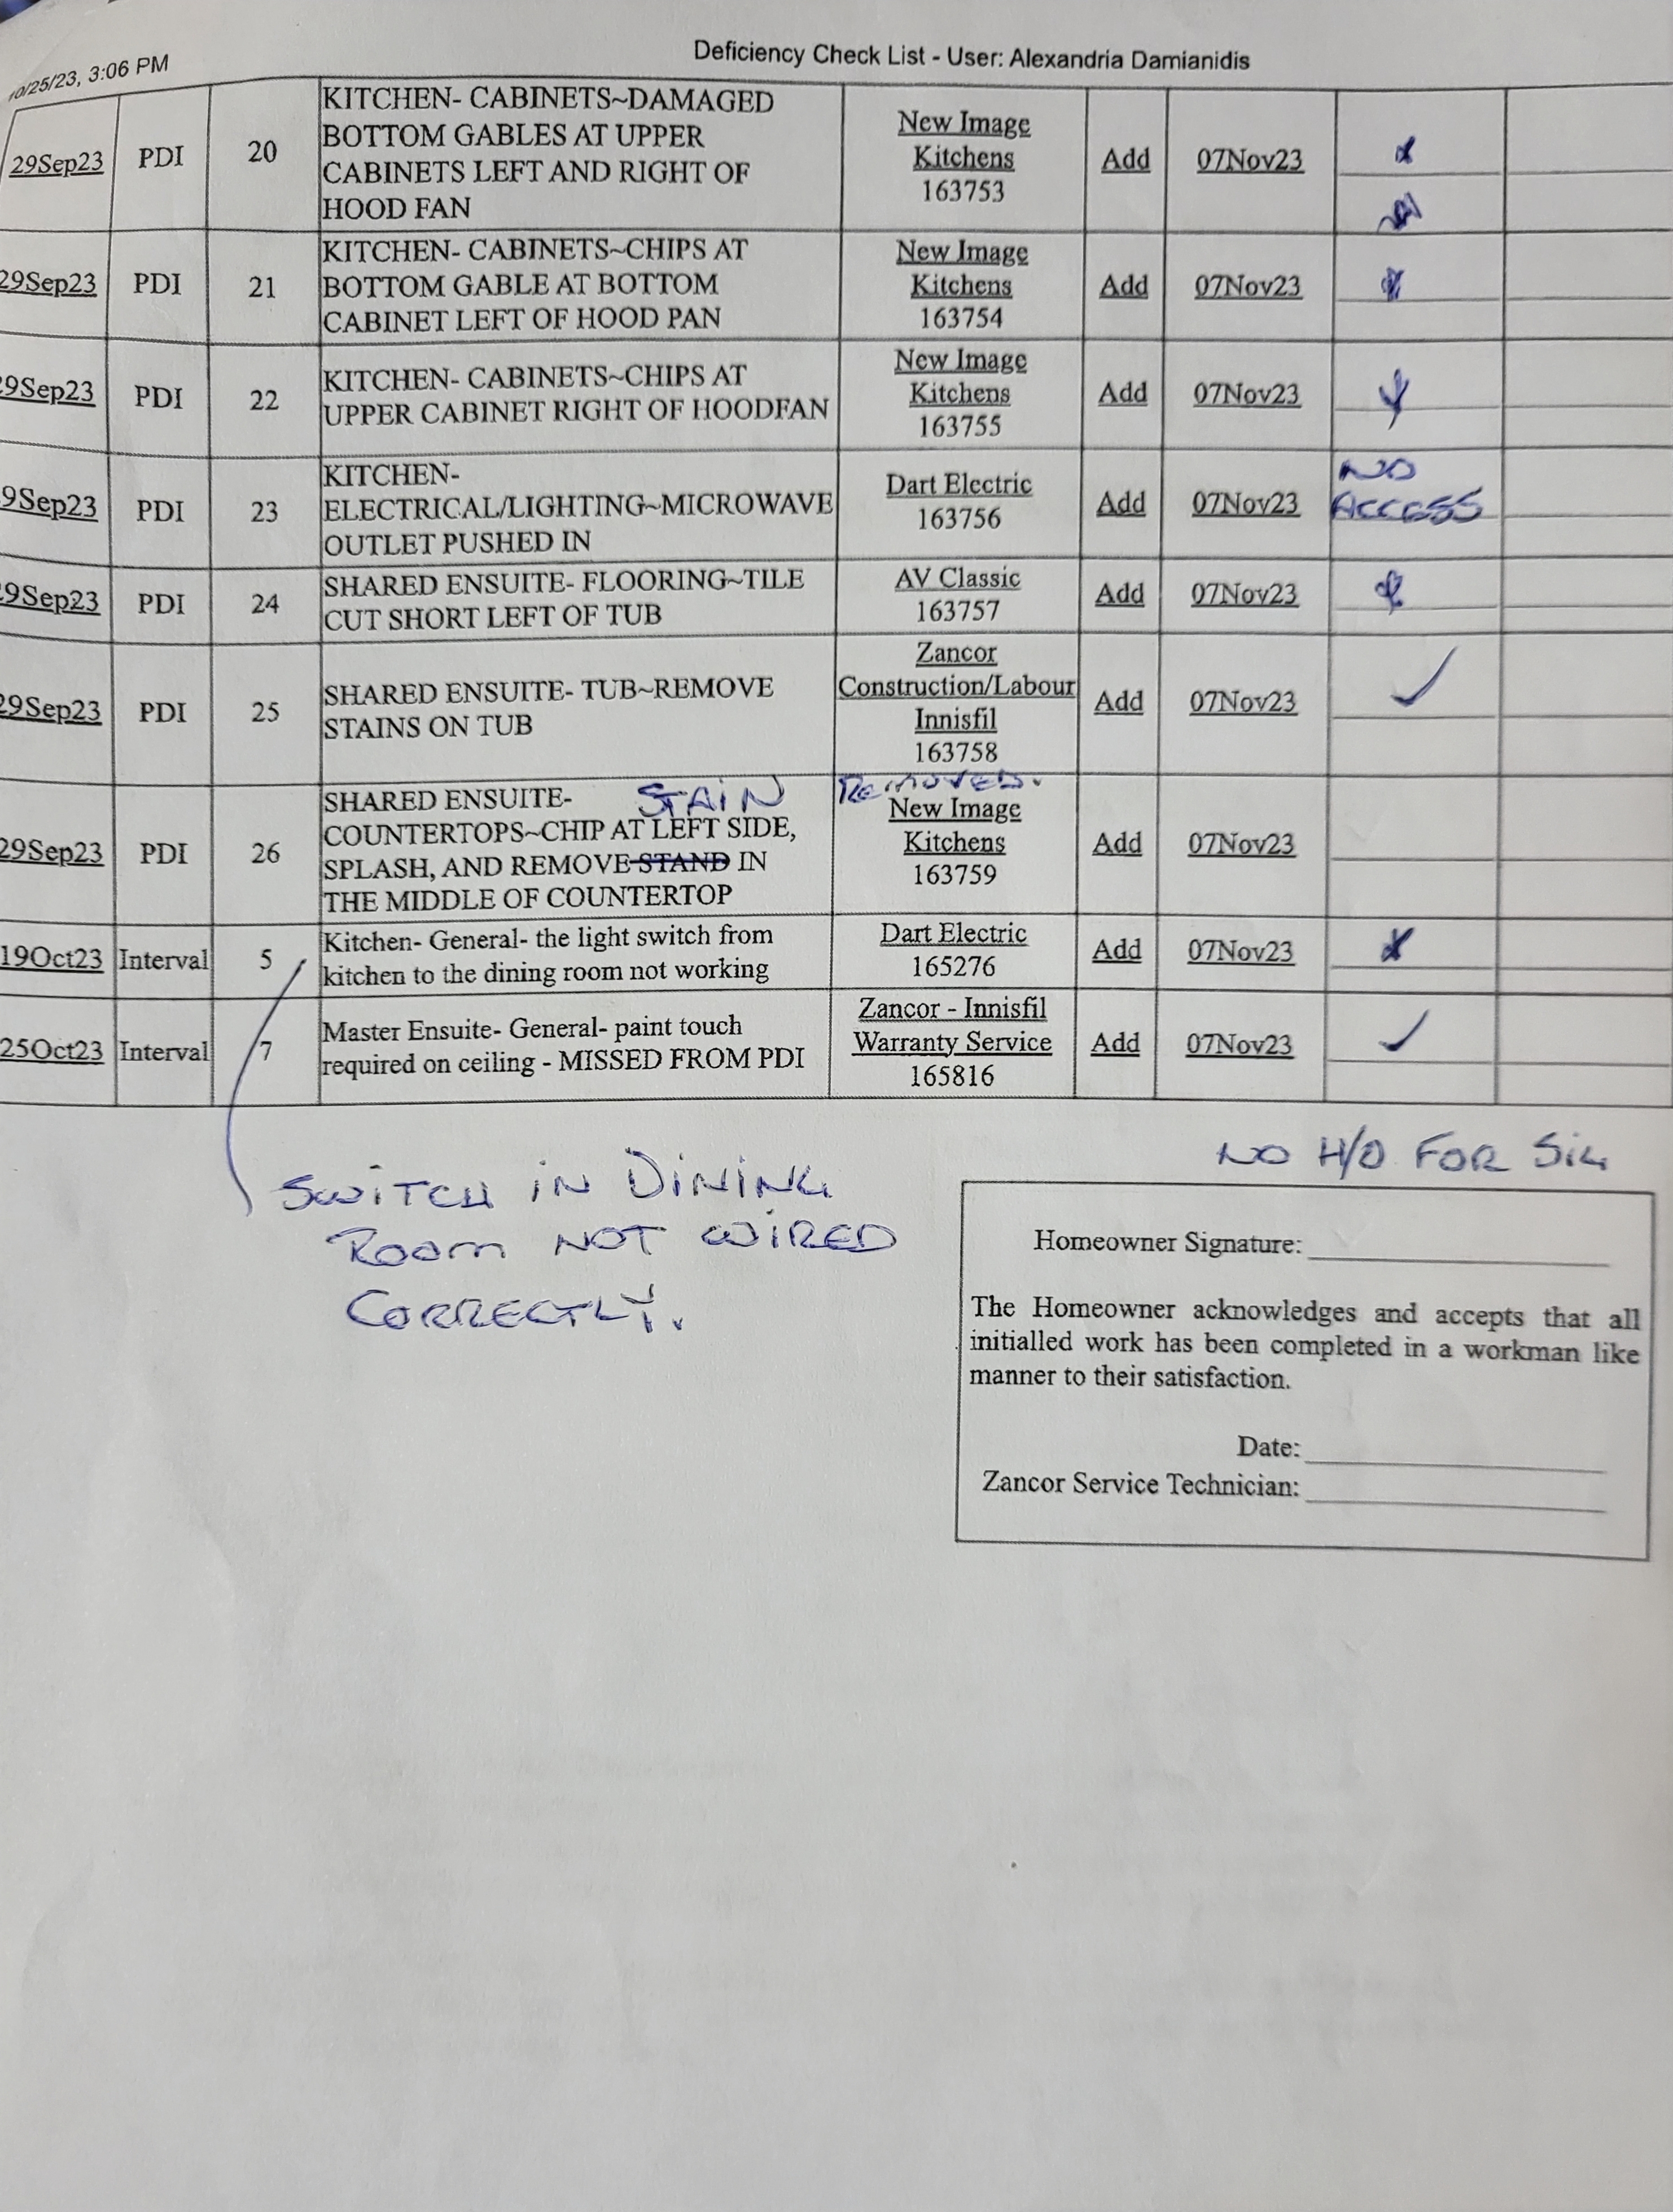 10/25/23, 3:06 PM
Deficiency Check List - User: Alexandria Damianidis
29Sep23 PDI 20 KITCHEN- CABINETS~DAMAGED
BOTTOM GABLES AT UPPER
CABINETS LEFT AND RIGHT OF
HOOD FAN
New Image
Kitchens
163753
Add 07Nov23
29Sep23 PDI 21 KITCHEN- CABINETS~CHIPS AT
BOTTOM GABLE AT BOTTOM
CABINET LEFT OF HOOD PAN
New Image
Kitchens
163754
Add 07Nov23
29Sep23 PDI 22 KITCHEN- CABINETS~CHIPS AT
UPPER CABINET RIGHT OF HOODFAN
New Image
Kitchens
163755
Add 07Nov23
9Sep23 PDI 23 KITCHEN-
ELECTRICAL/LIGHTING~MICROWAVE
OUTLET PUSHED IN
Dart Electric
163756
Add 07Nov23
NO
ACCESS
9Sep23 PDI 24 SHARED ENSUITE- FLOORING~TILE
CUT SHORT LEFT OF TUB
AV Classic
163757
Add 07Nov23
29Sep23 PDI 25 SHARED ENSUITE- TUB~REMOVE
STAINS ON TUB
Zancor
Construction/Labour
Innisfil
163758
Add 07Nov23 ✓
STAIN REMOVED.
29Sep23 PDI 26 SHARED ENSUITE-
COUNTERTOPS~CHIP AT LEFT SIDE,
SPLASH, AND REMOVE STAND IN
THE MIDDLE OF COUNTERTOP
New Image
Kitchens
163759
Add 07Nov23
19Oct23 Interval 5 Kitchen- General- the light switch from
kitchen to the dining room not working
Dart Electric
165276
Add 07Nov23
25Oct23 Interval 7 Master Ensuite- General- paint touch
required on ceiling - MISSED FROM PDI
Zancor - Innisfil
Warranty Service
165816
Add 07Nov23 ✓
SWITCH IN DINING
ROOM NOT WIRED
CORRECTLY.
NO H/O FOR SIG
Homeowner Signature:
The Homeowner acknowledges and accepts that all
initialled work has been completed in a workman like
manner to their satisfaction.
Date:
Zancor Service Technician: